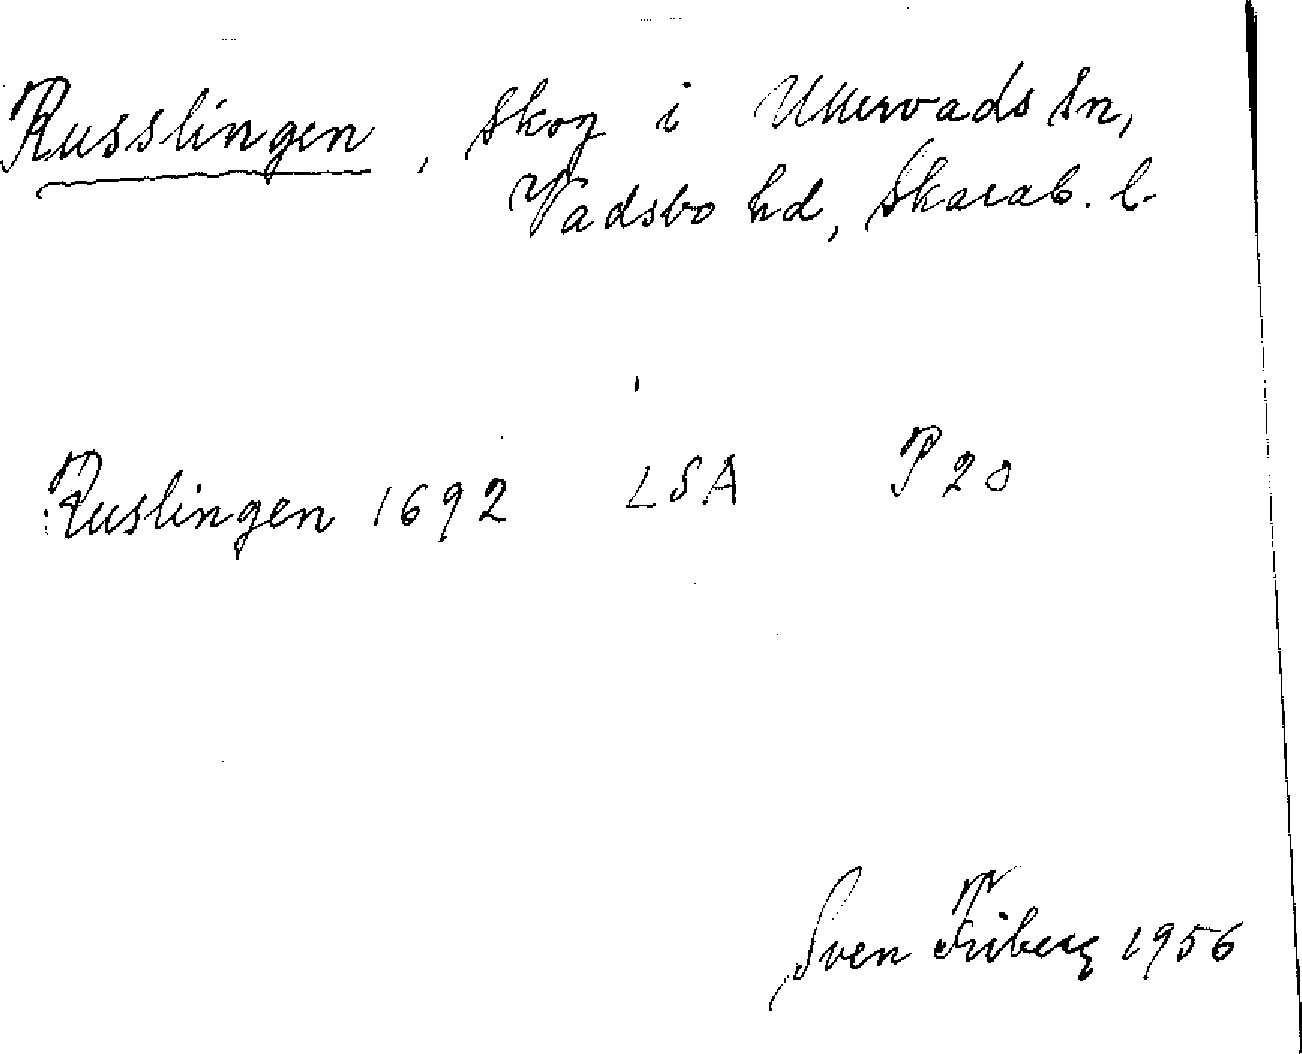 Russlingen, skog i Ullervads sn,
Vadsbo hd, Skarab. l.
Ruslingen 1692 LSA P20
Sven Friberg 1956